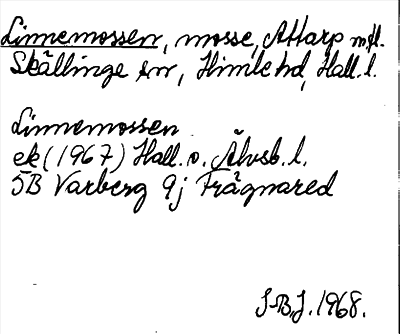 Linnemossen, mosse, Attarp m.fl.
Skällinge sn, Himle hd, Hall. l.
Linnemossen
ek (1967) Hall. o. Älvsb. l.
5B Varberg 9j Frägnared
S-B.J. 1968.